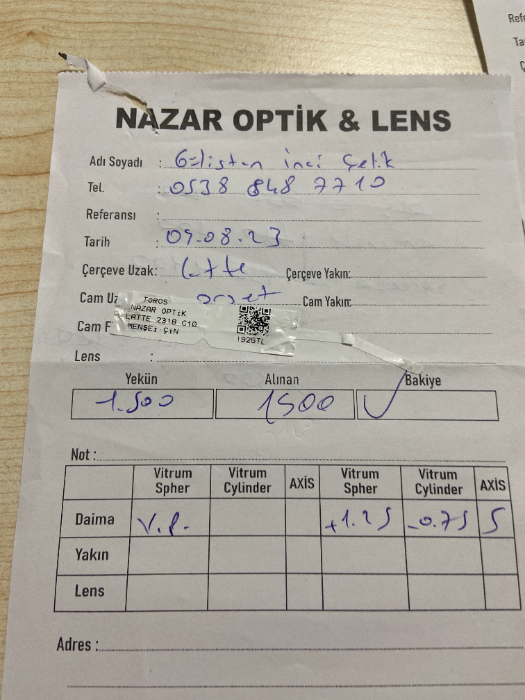 Refe
Ta
Ç
NAZAR OPTİK & LENS
Adı Soyadı : Gülistan inci Çelik
Tel. : 0538 848 7710
Referansı :
Tarih : 09.08.23
Çerçeve Uzak: Latte Çerçeve Yakın:
Cam Uz organik Cam Yakın:
Cam F
TOROS
NAZAR OPTİK
LATTE 2318 C10
MENŞEİ ÇİN
1925TL
Lens :
Yekün Alınan Bakiye
1.500 1500
Not :
Vitrum Spher Vitrum Cylinder AXİS Vitrum Spher Vitrum Cylinder AXİS
Daima V.P. +1.25 -0.75 5
Yakın
Lens
Adres :